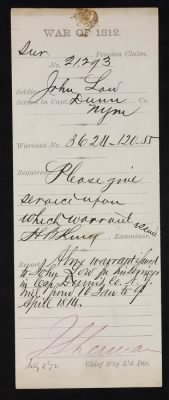 WAR OF 1812.
Sur. Pension Claim,
No. 21,293
Soldier John Low
Served in Capt. Dunn Co.
NYM
Warrant No. 3624-120.55
Required
Please give
service upon
which warrant issued
H B King Examiner.
Report Above warrant issued
to John Low for services
in Capt Dunn's Co. N.Y.
Mil. from 10 Jan to 9
April 1814.
J Sherman
Chief W'ty L'd Div.